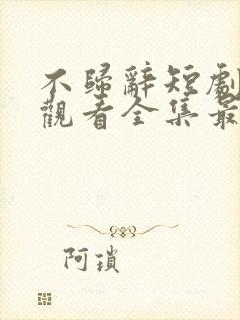 不歸辭短劇
觀看全集最
阿瑣